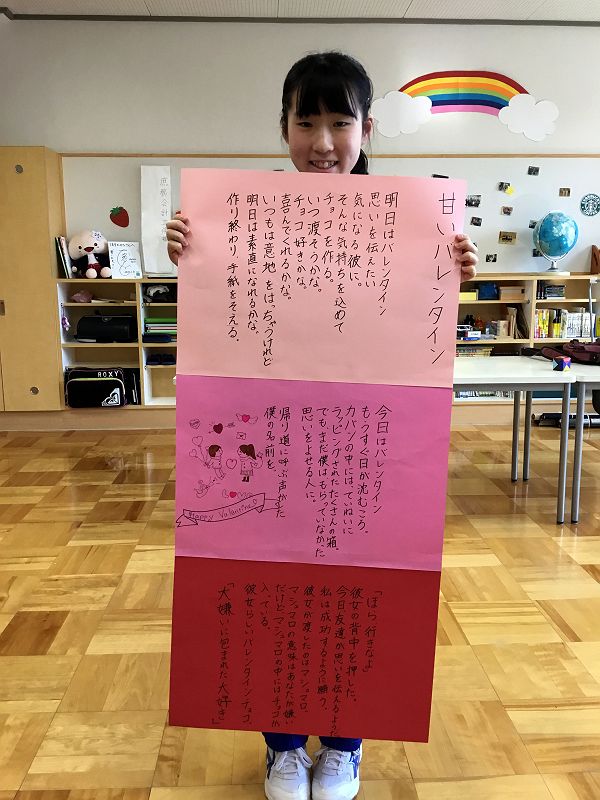 甘いバレンタイン
明日はバレンタイン
思いを伝えたい
気になる彼に。
そんな気持ちを込めて
チョコを作る。
いつ渡そうかな。
チョコ好きかな。
喜んでくれるかな。
いつもは意地をはっちゃうけれど
明日は素直になれるかな。
作り終わり、手紙をそえる。
今日はバレンタイン
もうすぐ日が沈むころ。
カバンの中には、ていねいに
ラッピングされたたくさんの箱。
でもまだ僕はもらっていなかった
思いをよせる人に。
帰り道に呼ぶ声がした
僕の名前を。
Happy Valentine♡
「ほら、行きなよ」
彼女の背中を押した。
今日友達が思いを伝えるようだ
私は成功するように願う。
彼女が渡したのはマシュマロ。
マシュマロの意味はあなたが嫌い
だけど、マシュマロの中にはチョコが
入っている。
彼女らしいバレンタインチョコ。
「大嫌いに包まれた大好き」
ROXY